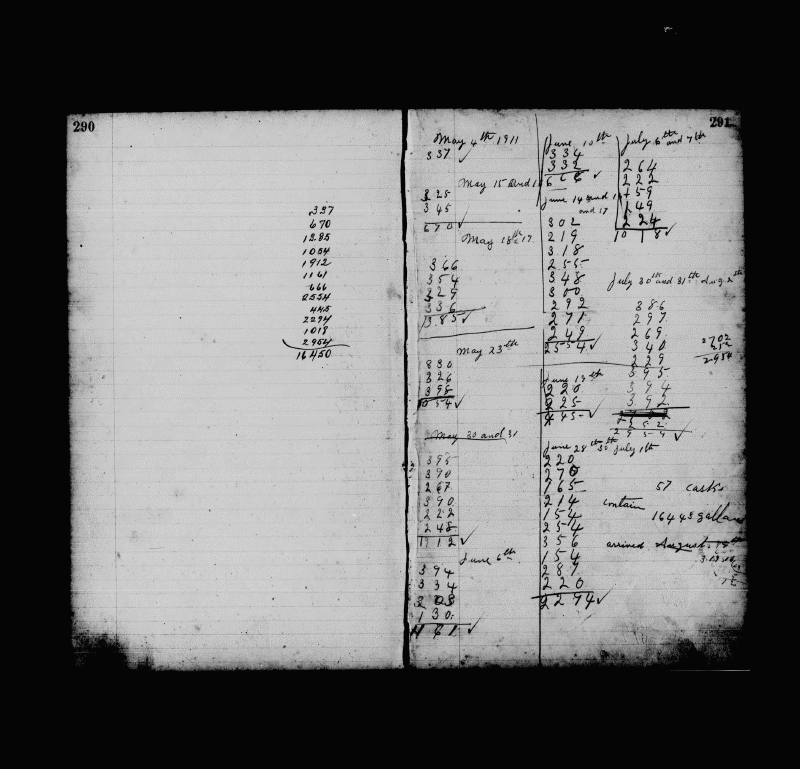 290
337
670
1385
1054
1912
1161
666
2554
445
2294
1018
2954
16450
291
May 4th 1911
337
May 15 and 16
325
345
670
May 18th 19
366
354
329
336
1385
May 23th
330
326
398
1054
May 30 and 31
395
390
267
390
222
248
1912
June 6th
394
334
303
130
1161
June 10th
334
332
666
June 14 and
and 17
302
219
318
255
348
300
292
271
249
2554
June 19th
220
225
445
June 28th 30 July 1th
220
270
165
214
154
254
356
154
287
220
2294
July 6th and 7th
264
222
159
149
224
1018
July 30th and 31th Aug 2th
386
297
269
340
329
395
394
392
252
2954
2702
252
2954
57 casks
contain
16443 gallons
arrived August